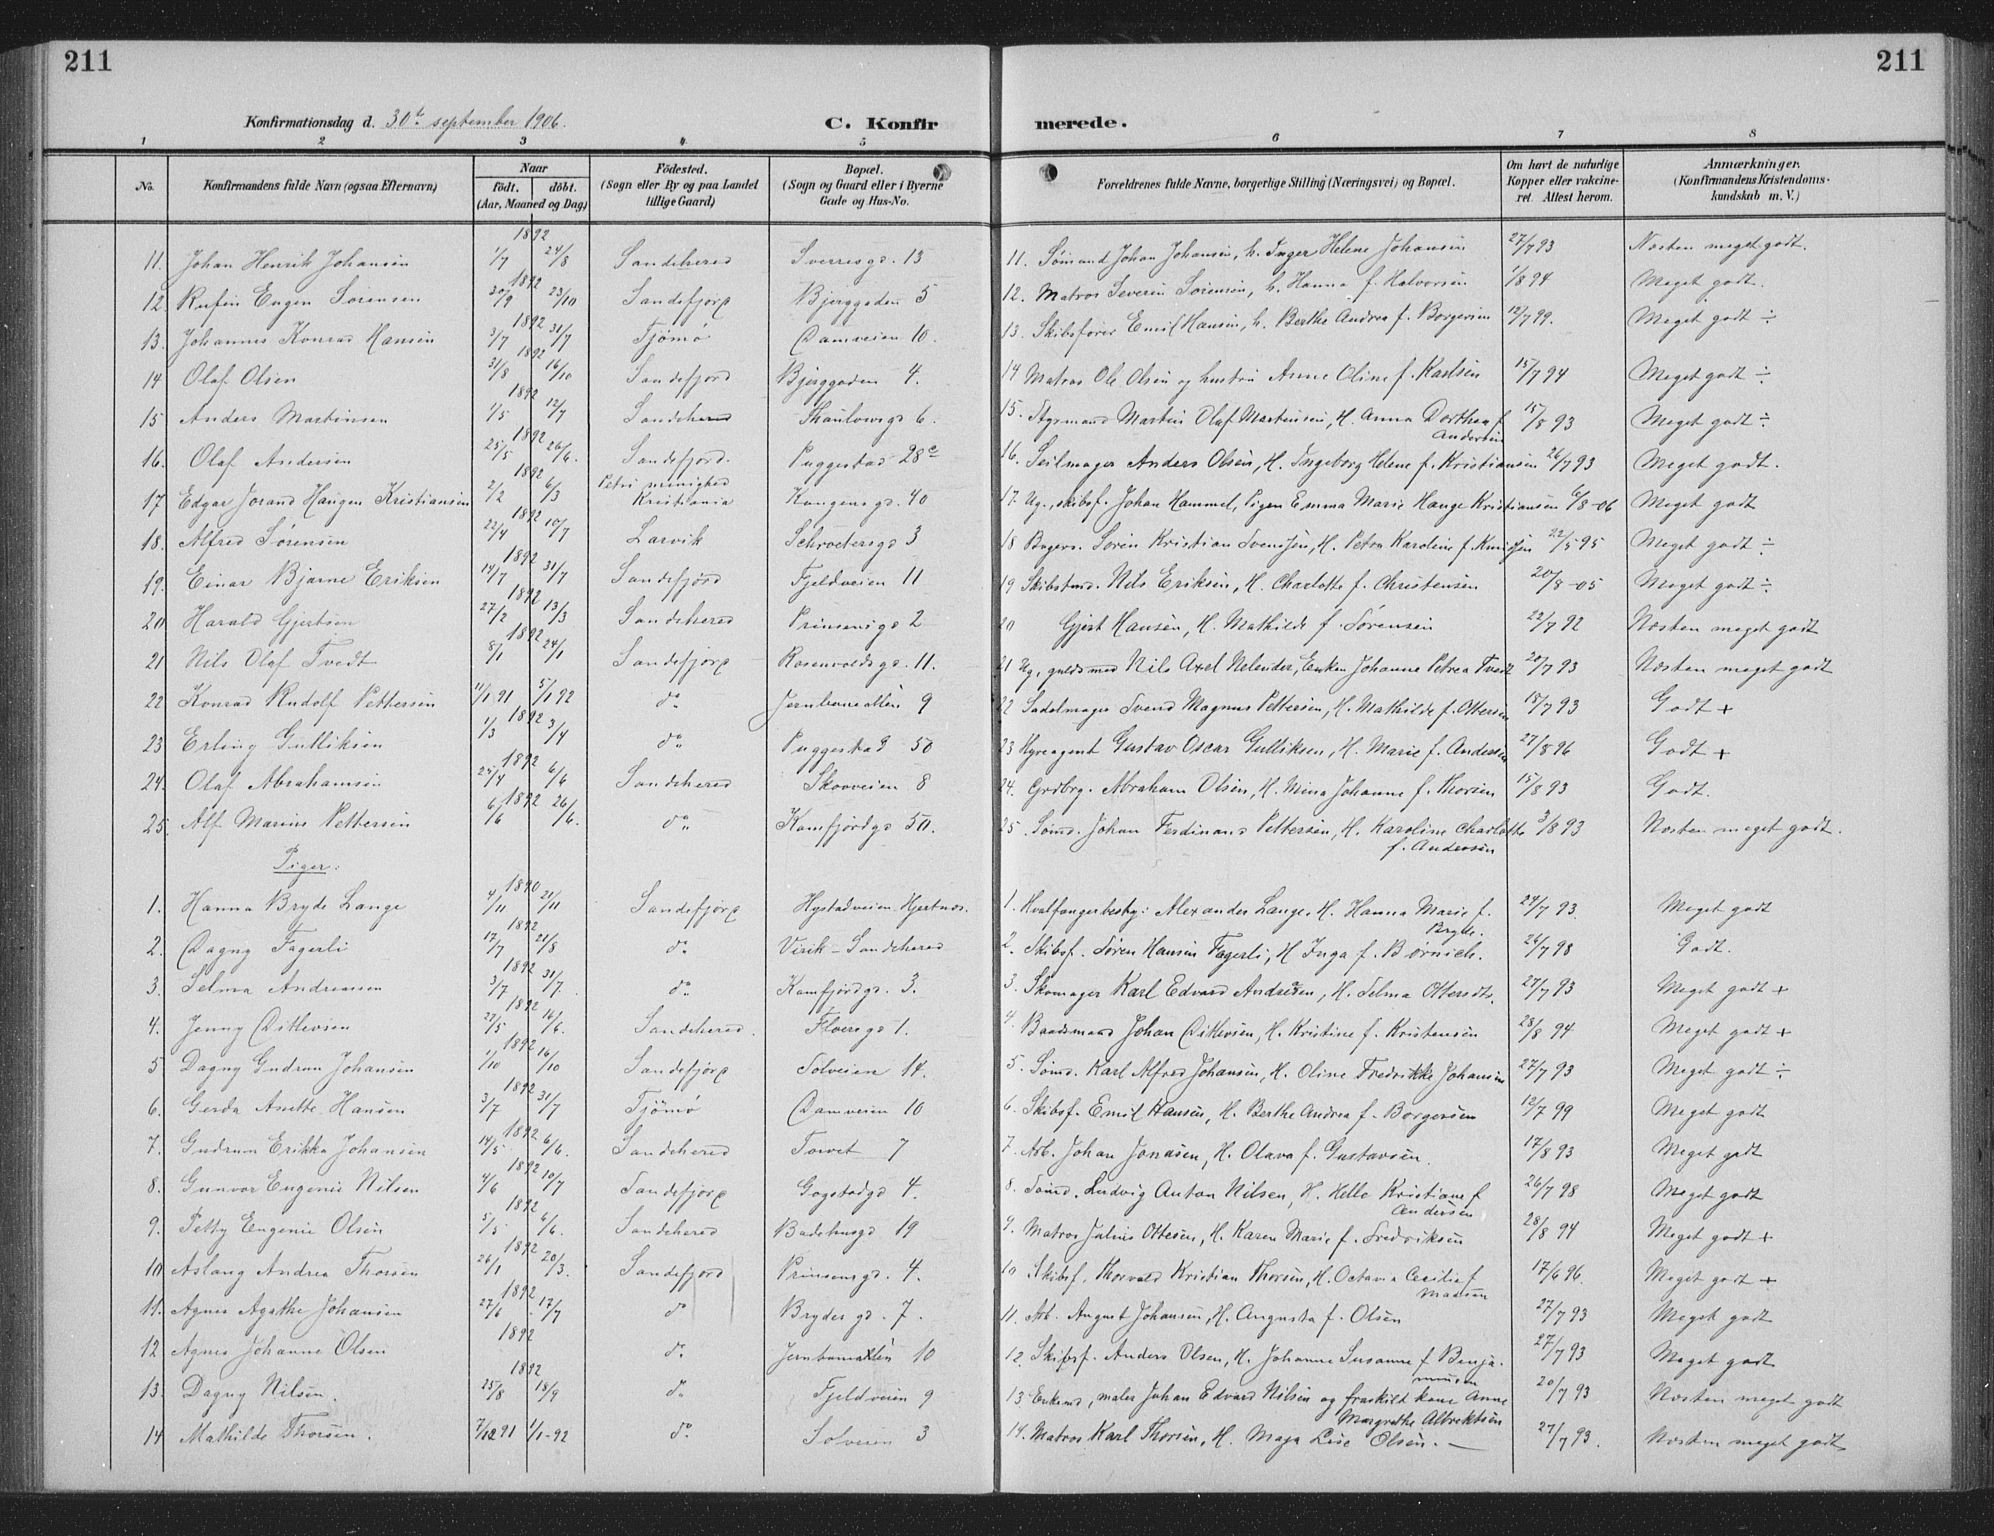 211
211
Konfirmationsdag d. 30te september 1906.
C. Konfir
merede.
1 2 3 4 5 6 7 8
No.
Konfirmandens fulde Navn (ogsaa Efternavn)
Naar
födt. döbt.
(Aar, Maaned og Dag)
Födested.
(Sogn eller By og paa Landet
tillige Gaard)
Bopæl.
(Sogn og Gaard eller i Byerne
Gade og Hus-No.
Forældrenes fulde Navne, borgerlige Stilling (Næringsvei) og Bopæl.
Om havt de naturlige
Kopper eller vakcine-
ret. Attest herom.
Anmærkninger.
(Konfirmandens Kristendoms-
kundskab m. V.)
11. Johan Henrik Johansen 1892 1/7 24/8 Sandehered Sverresgd. 13 11. Sömand Johan Johansen, h. Inger Helene Johansen 27/7 93 Næsten meget godt.
12. Rufin Eugen Sörensen 1892 30/9 23/10 Sandefjord Bjerggaden 5 12. Matros Severin Sörensen, h. Hanna f. Halvorsen 1/8 94 Meget godt.
13. Johannes Konrad Hansen 1892 3/7 31/7 Tjömö Damveien 10. 13. Skibsförer Emil Hansen, h. Berthe Andrea f. Borgersen 12/7 99. Meget godt ÷
14 Olaf Olsen 1892 31/8 16/10 Sandefjord Bjerggaden 4. 14 Matros Ole Olsen og hustru Anne Oline f. Karlsen 15/7 94 Meget godt ÷
15 Anders Martinsen 1892 1/5 12/7 Sandeherred Thaulowsgd 6. 15. Styrmand Martin Olaf Martinsen, H. Anna Dorthea f. Andersen 15/8 93 Meget godt ÷
16. Olaf Andersen 1892 25/5 26/6. Sandefjord. Puggestad 28c 16. Seilmager Anders Olsen, H. Ingeborg Helene f. Kristiansen 26/7 93 Meget godt.
17 Edgar Jorand Haugen Kristiansen 1892 2/2 6/3 Petri menighed Kristiania Kongensgd. 40 17. Ug., skibsf. Johan Hammel, Pigen Emma Marie Hauge Kristiansen 6/8-06 Meget godt
18. Alfred Sörensen 1892 22/4 10/7 Larvik Schroetersgd 3 18 Bogerv. Sören Kristian Svendsen, H. Petra Karoline f. Knudsen 22/5 95 Meget godt ÷
19. Einar Bjarne Eriksen 1892 14/7 31/7 Sandefjord Fjeldveien 11 19 Skibstmd. Nils Eriksen, H. Charlotte f. Christensen 20/8-05 Meget godt ÷
20 Harald Gjertsen 1892 27/2 13/3 Sandeherred Prinsensgd 2 20 Gjert Hansen, H. Mathilde f. Sörensen 22/7 92 Næsten meget godt
21 Nils Olaf Tvedt 1892 8/1 24/1 Sandefjord Rosenvoldsgd. 11. 21 Ug, guldsmed Nils Axel Melender, Enken Johanne Petrea Tvedt 20/7 93 Næsten meget godt
22 Konrad Rudolf Pettersen 11/1 91 5/1 92 do. Jernbanealleen 9 22 Sadelmager Svend Magnus Pettersen, H. Mathilde f. Ottersen 18/7 93 Godt +
23 Erling Gulliksen 1892 1/3 3/4 do. Puggestad 50 23 Hyreagent Gustav Oscar Gulliksen, H. Marie f. Andersen 27/8 96 Godt +
24. Olaf Abrahamsen 1892 25/4 6/6 Sandeherred Skovveien 8 24. Grdbrg. Abraham Olsen, H. Mina Johanne f. Thorsen 15/8 93 Godt.
25. Alf Marius Pettersen 1892 6/6 26/6. do. Kamfjordgd 50. 25. Sömd. Johan Ferdinand Pettersen, H. Karoline Charlotte f. Andersen 3/8 93 Næsten meget godt.
Piger:
1. Hanna Bryde Lange 1890 4/11 21/11 Sandefjord Hystadveien. Hjertnæs. 1. Hvalfangerbesty: Alexander Lange, H. Hanna Marie f. Bryde. 24/7 93. Meget godt
2. Dagny Fagerli 1892 17/7 21/8 do. Virik - Sandeherred 2. Skibsf. Sören Hansen Fagerli, H Inga f. Börnich. 26/7 98 Godt.
3. Selma Andreassen 1892 3/7 31/7. do. Kamfjordgd. 3. 3. Skomager Karl Edvard Andresen, H. Selma Ottersdtr. 27/7 93 Meget godt +
4. Jenny Ditlevsen 1892 22/5 16/6. Sandeherred. Elversgd 1. 4. Baadsmand Johan Ditlevsen, H. Kristine f. Kristensen 23/8 94 Meget godt +
5 Dagny Gudrun Johansen 1892 1/10 16/10 Sandefjord Solveien 14. 5. Sömd. Karl Alfred Johansen, H. Oline Fredrikke Johansen 27/7 93 Meget godt ÷
6. Gerda Anette Hansen 1892 3/7 31/7 Tjömö Damveien 10 6. Skibsf. Emil Hansen, H. Berthe Andrea f. Borgersen 12/7 99 Meget godt
7. Gudrun Erikka Johansen 1892 14/5 6/6. Sandeherred Torvet 7 7. Arb. Johan Jonasen, H. Olava f. Gustavsen. 17/8 93 Meget godt
8. Gunvor Eugenie Nilsen 1892 4/6 10/7 Sandefjord Gogstadgd 4. 8. Sömd. Ludvig Anton Nilsen, H. Helle Kristiane f. Andersen 26/7 98 Meget godt
9. Petty Eugenie Olsen 1892 5/5 6/6. Sandeherred Badehusgd 19 9. Matros Julius Ottesen, H. Karen Marie f. Fredriksen 28/8 94 Meget godt +
10 Aslaug Andrea Thorsen 1892 26/1 20/3. Sandefjord Prinsensgd. 4. 10 Skibsf. Thorvald Kristian Thorsen, H. Octavia Cecilie f. Madsen 17/6 96. Meget godt +
11. Agnes Agathe Johansen 1892 27/6 17/7 do Brydes gd. 7. 11. Arb. August Johansen, H. Augusta f. Olsen 27/7 93 Meget godt
12 Agnes Johanne Olsen 1892 do. Jernbanealleen 10 12. Skibsf. Anders Olsen, H. Johanne Susanne f. Benjaminsen 27/7 93 Meget godt
13. Dagny Nilsen. 1892 25/8 18/9 do. Fjeldveien 9 13 Enkemd, maler Johan Edvard Nilsen og fraskilt kone Anne Margrethe Albrektsen 20/7 93 Næsten meget godt
14 Mathilde Thorsen. 7/12 91 1/1-92 do. Solveien 3 14. Matros Karl Thorsen, H. Maja Lise Olsen. — 27/7 93. Næsten meget godt